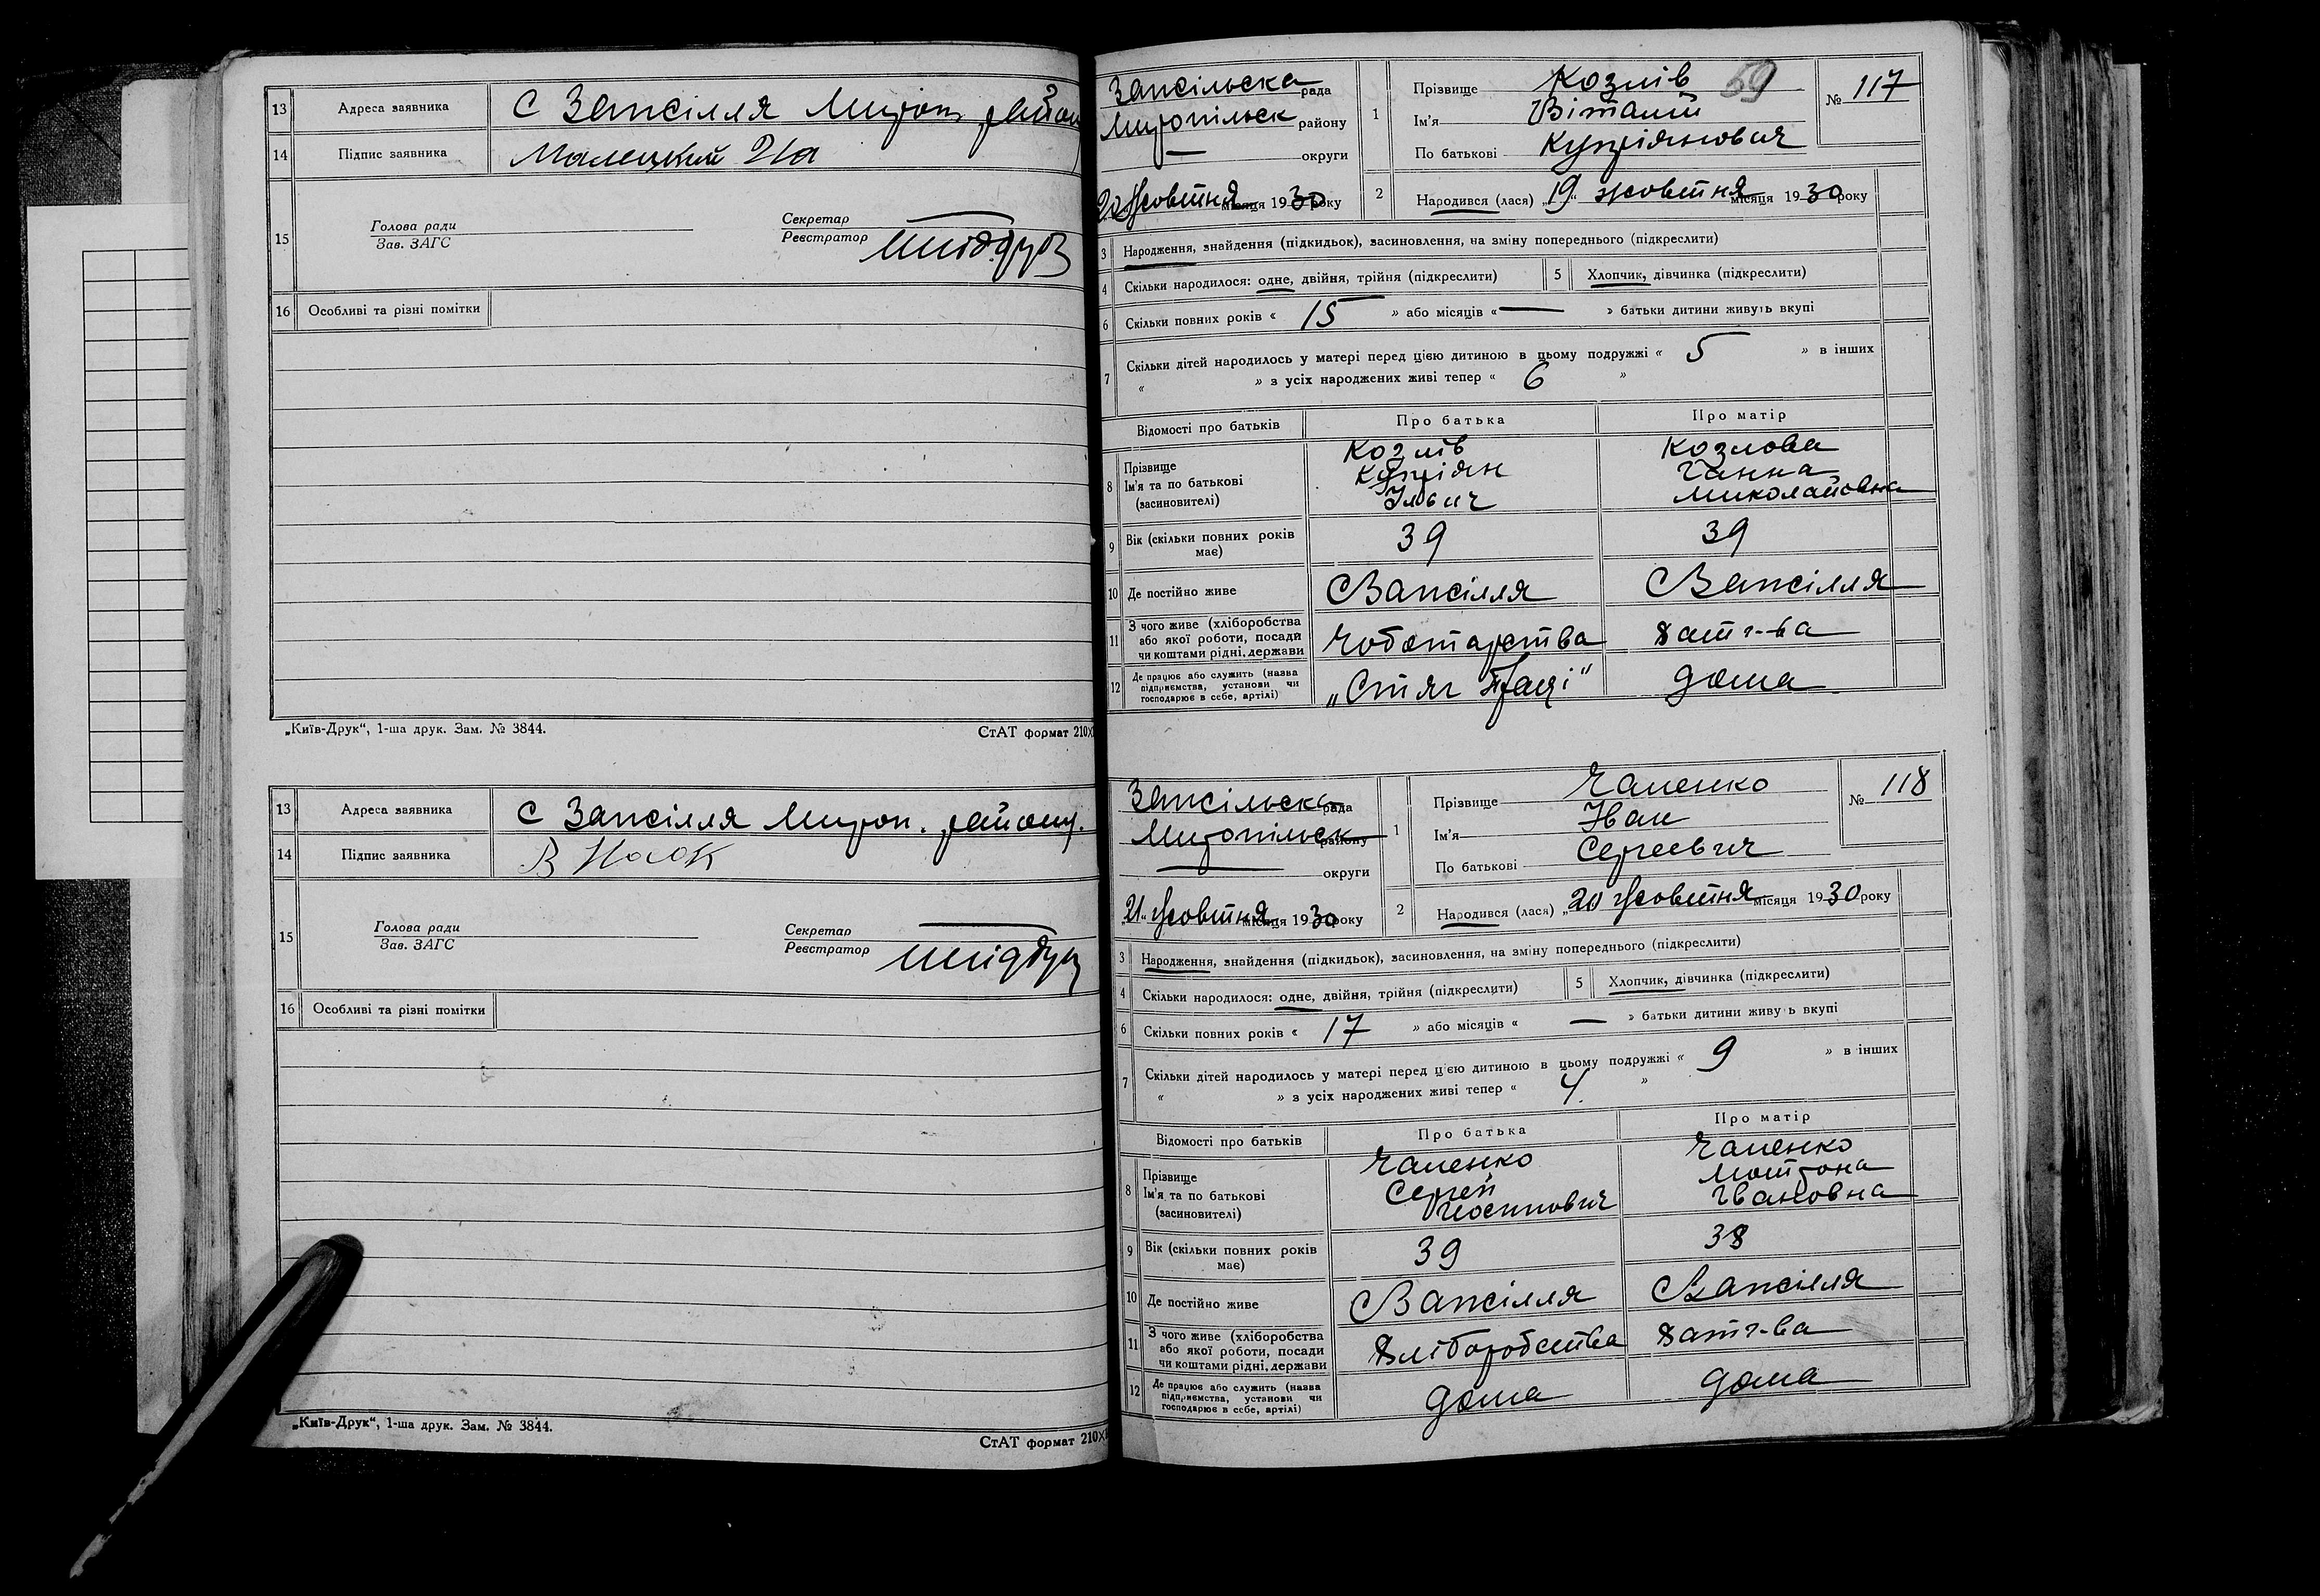 13 Адреса заявника С Запсілля Мироп. район
14 Підпис заявника Малецкий
15 Голова ради Секретар
Зав. ЗАГС Реєстратор
16 Особливі та різні помітки
„Київ-Друк“, 1-ша друк. Зам. № 3844. СтАТ формат 210×
13 Адреса заявника С Запсілля Мироп. району.
14 Підпис заявника В
15 Голова ради Секретар
Зав. ЗАГС Реєстратор
16 Особливі та різні помітки
„Київ-Друк“, 1-ша друк. Зам. № 3844. СтАТ формат 210×
59
Запсільска рада
Миропільск району
— округи
20 Жовтня місяця 1930 року
1 Прізвище Козлів
Ім'я Віталій
По батькові Купріянович
№ 117
2 Народився (лася) „19“ жовтня місяця 1930 року
3 Народження, знайдення (підкидьок), засиновлення, на зміну попереднього (підкреслити)
4 Скільки народилося: одне, двійня, трійня (підкреслити) 5 Хлопчик, дівчинка (підкреслити)
6 Скільки повних років « 15 » або місяців « — » батьки дитини живуть вкупі
7 Скільки дітей народилось у матері перед цією дитиною в цьому подружжі « 5 » в інших
« » з усіх народжених живі тепер « 6 »
Відомості про батьків Про батька Про матір
8 Прізвище Козлів Козлова
Ім'я та по батькові Купріян Ганна
(засиновителі) Ільич Миколайовна
9 Вік (скільки повних років має) 39 39
10 Де постійно живе С Запсілля С Запсілля
11 З чого живе (хліборобства або якої роботи, посади чи коштами рідні, держави Чоботарства хатг-ва
12 Де працює або служить (назва підприємства, установи чи господарює в себе, артілі) „Стяг Праці“ дома
Запсільска рада
Миропільск району
— округи
„21“ Жовтня місяця 1930 року
1 Прізвище Чапенко
Ім'я Іван
По батькові Сергеевич
№ 118
2 Народився (лася) „20 Жовтня місяця 1930 року
3 Народження, знайдення (підкидьок), засиновлення, на зміну попереднього (підкреслити)
4 Скільки народилося: одне, двійня, трійня (підкреслити) 5 Хлопчик, дівчинка (підкреслити)
6 Скільки повних років « 17 » або місяців « — » батьки дитини живуть вкупі
7 Скільки дітей народилось у матері перед цією дитиною в цьому подружжі « 9 » в інших
« » з усіх народжених живі тепер « 4 »
Відомості про батьків Про батька Про матір
8 Прізвище Чапенко Чапенко
Ім'я та по батькові Сергей Мотрона
(засиновителі) Иосипович Ивановна
9 Вік (скільки повних років має) 39 38
10 Де постійно живе С Запсілля С Запсілля
11 З чого живе (хліборобства або якої роботи, посади чи коштами рідні, держави Хліборобства хатг-ва
12 Де працює або служить (назва підприємства, установи чи господарює в себе, артілі) дома дома